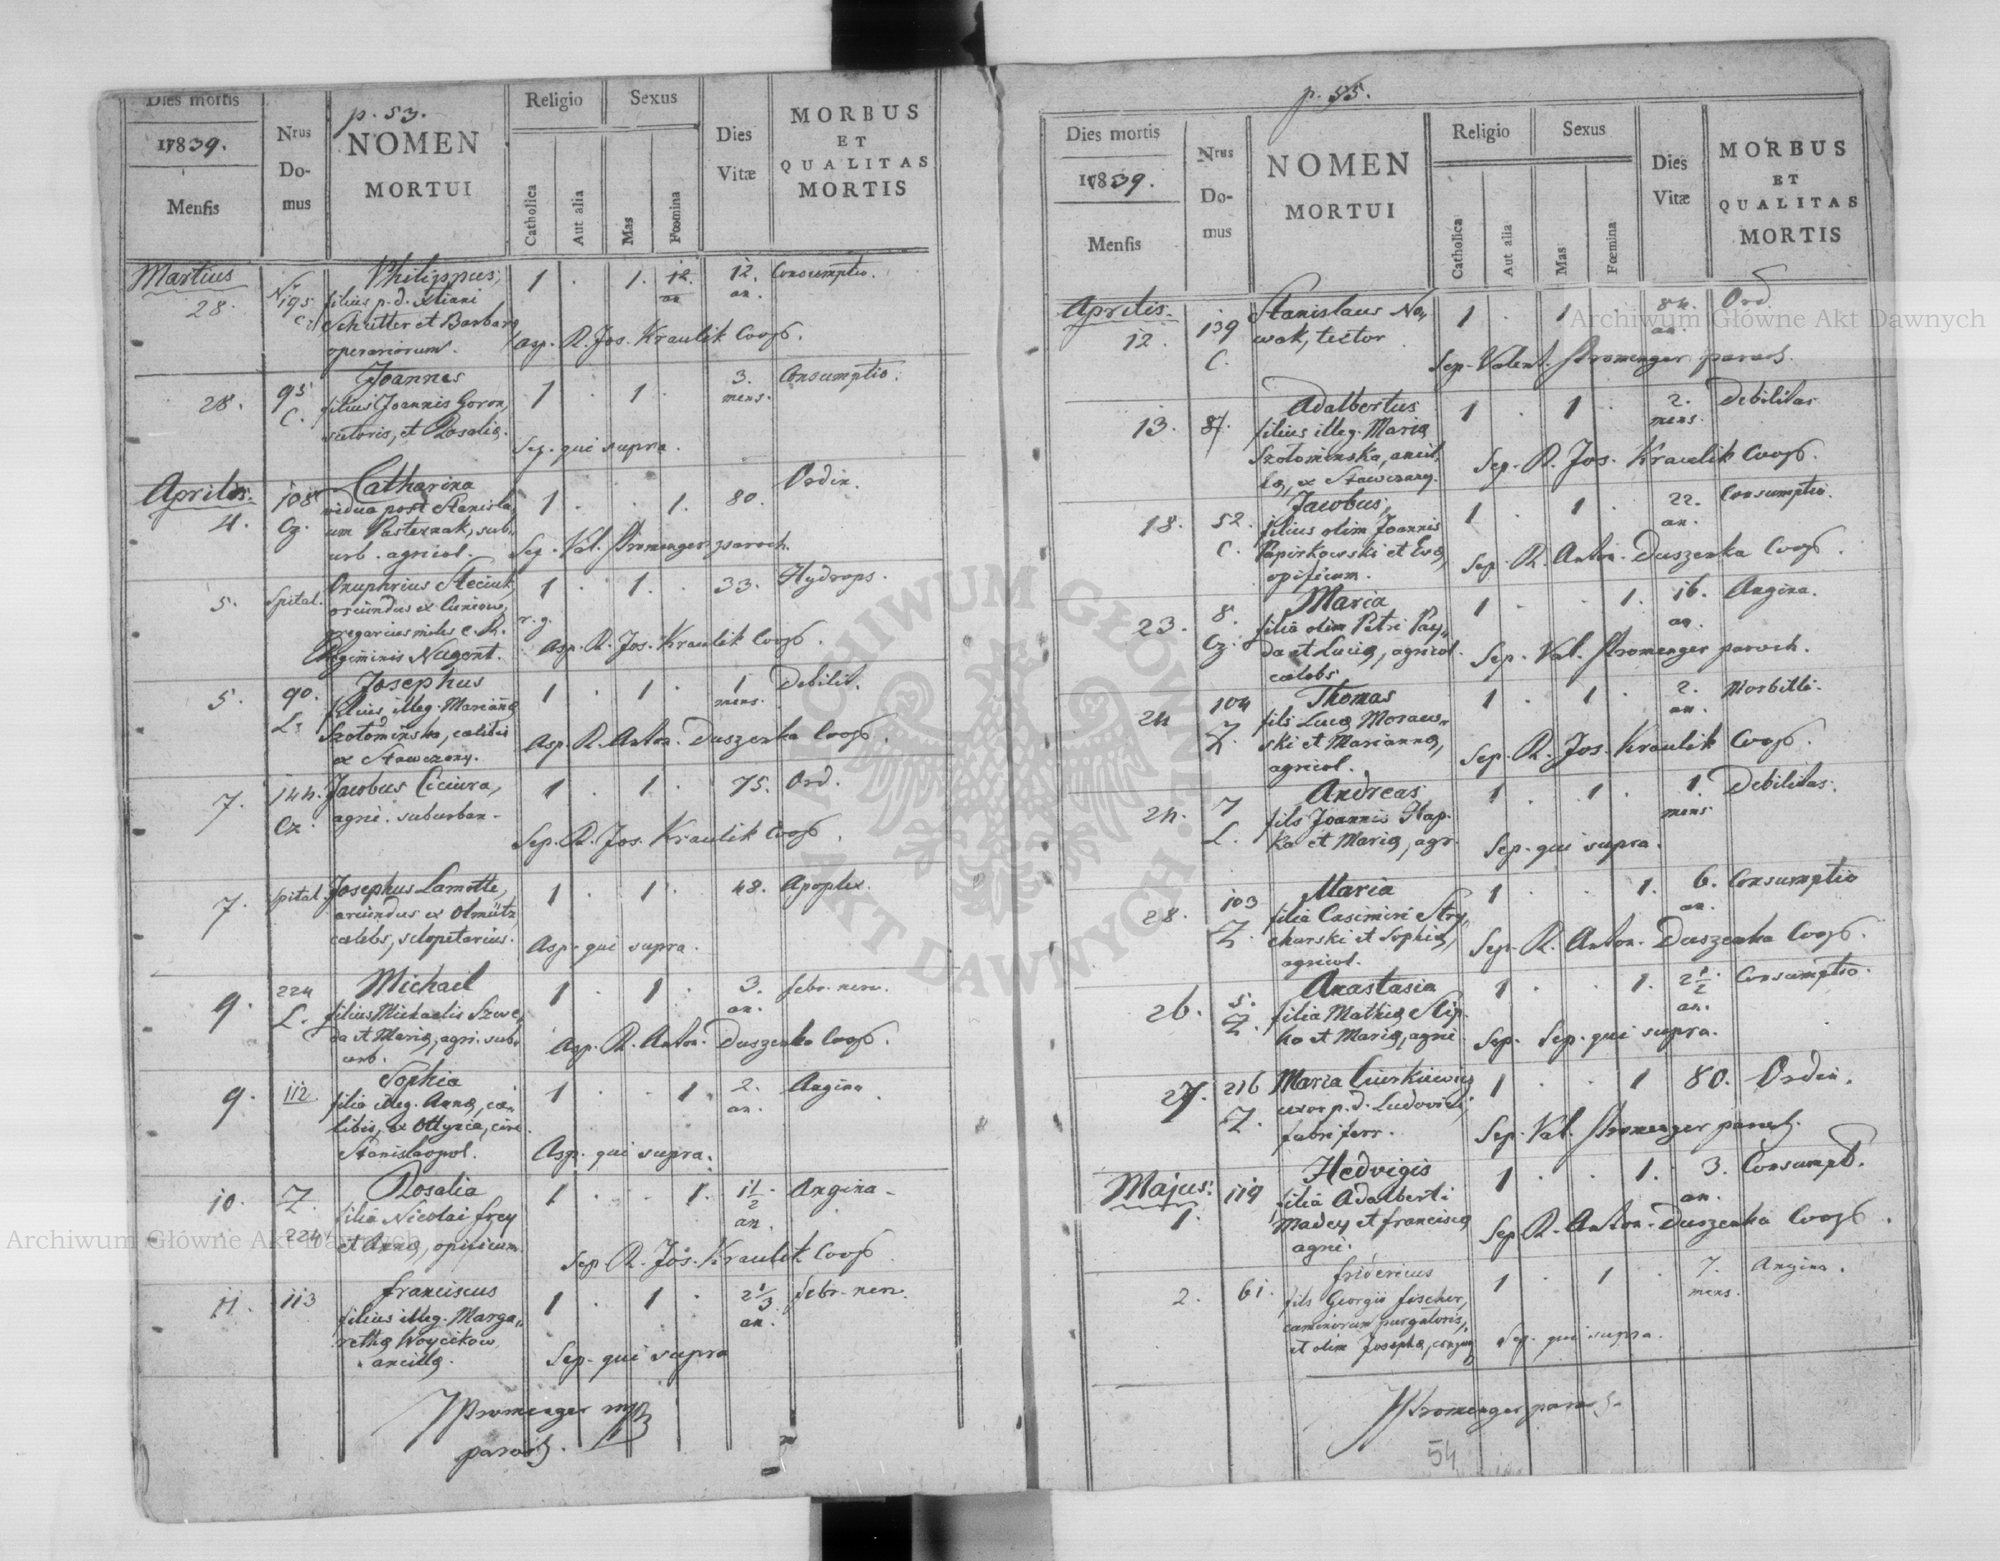 p. 53.
Dies mortis
1839.
Mensis
Nrus
Do-
mus
NOMEN
MORTUI
Religio
Catholica
Aut alia
Sexus
Mas
Fœmina
Dies
Vitæ
MORBUS
ET
QUALITAS
MORTIS
Martius
28. N 195 C. Philippus, 1 . 1. 12. an 12. an. Consumptio.
filius p. d. Xtiani
Schutter et Barbara
operariorum.
Asp. R. Jos. Kraulik Coop.
28. 95 C. Joannes 1 . 1 . 3. mens. Consumptio.
filius Joannis Goron,
sutoris, et Rosalia.
Sep. qui supra.
Aprilis.
4. 108 Cz. Catharina 1 . . 1. 80. Ordin.
vidua post Stanisla,
um Pasternak, sub,
urb. agricol.
Sep. Val. Stromenger paroch.
5. Spital. Onuphrius Steciuk, 1 . 1. . 33. Hydrops.
oriundus ex Cuniow,
gregarius miles C. R.
Regiminis Nugent.
r. g.
Asp. R. Jos. Kraulik Coop.
5. 90. L. Josephus 1 . 1 . 1 mens. Debilit.
filius illeg. Mariañæ
Szołomińska, cælibis
ex Stawczany.
Asp. R. Anton. Duszenka Coop.
7. 144. Cz. Jacobus Ciciura, 1 . 1. . 75. Ord.
agri. suburban.
Sep. R. Jos. Kraulik Coop.
7. Spital. Josephus Lamotte, 1 . 1. . 48. Apoplex.
oriundus ex Olmütz,
cælebs, sclopetarius.
Asp. qui supra.
9. 224 L. Michael 1 . 1 . 3. an. febr. nerv.
filius Michaelis Szwe,
da et Maria, agri. sub,
urb.
Asp. R. Anton. Duszenka Coop.
9. 112. Sophia 1 . . 1 2. an. Angina
filia illeg. Anna, cæ,
libis, ex Ottynia, circ.
Stanislaopol.
Asp. qui supra.
10. Z. 224 Rosalia 1 . . 1. 1 1/2 an. Angina.
filia Nicolai Frey
et Anna, opificum.
Sep. R. Jos. Kraulik Coop.
11. 113 Franciscus 1 . 1 . 2 1/3 an. febr. nerv.
filius illeg. Marga,
retha Woycikow
ancilla.
Sep. qui supra
Stromenger mp
paroch.
p. 55.
Dies mortis
1839.
Mensis
Nrus
Do-
mus
NOMEN
MORTUI
Religio
Catholica
Aut alia
Sexus
Mas
Fœmina
Dies
Vitæ
MORBUS
ET
QUALITAS
MORTIS
Aprilis.
12. 139 C. Stanislaus No, 1 . 1 84. an. Ord.
wak, tector
Sep. Valent. Stromenger paroch.
13. 87. Adalbertus 1 . 1 . 2. mens. Debilitas
filius illeg. Maria
Szołominska, ancil,
la, ex Stawczany.
Sep. R. Jos. Kraulik Coop.
18. 52. C. Jacobus, 1 . 1 . 22. an. Consumptio.
filius olim Joannis
Papirkowski et Eva,
opificum.
Sep. R. Anton. Duszenka Coop.
23. 8. Cz. Maria 1 . . 1. 16. an. Angina.
filia olim Petri Pay,
da et Lucia, agricol.
cælebs
Sep. Val. Stromenger paroch.
24 104 Z. Thomas 1 . 1 . 2. an. Morbilli.
fils Luca Moraws,
ski et Marianna,
agricol.
Sep. R. Jos. Kraulik Coop.
24. 7 L. Andreas 1 . 1 . 1. mens Debilitas.
fils Joannis Hap,
ka et Maria, agr.
Sep. qui supra.
28. 103 Z. Maria 1 . . 1. 6. an. Consumptio
filia Casimiri Stry,
charski et Sophia,
agricol.
Sep. R. Anton. Duszenka Coop.
26. 5. Z. Anastasia 1 . . 1. 2 1/2 an. Consumptio.
filia Mathia Slip,
ko et Maria, agri.
Sep. Sep. qui supra.
27. 216 Z. Maria Cierkiewicz 1 . . 1 80. Ordin.
uxor p. d. Ludovici,
fabri ferr.
Sep. Val. Stromenger paroch.
Majus.
1. 119 Hedvigis 1 . . 1. 3. an. Consumpt.
filia Adalberti
Madey et Francisca
agri.
Sep. R. Anton. Duszenka Coop.
2. 61. Fridericus 1 . 1 . 7. mens. Angina.
fils Georgii Fischer,
caminorum purgatoris,
et olim Josepha, conjug.
Sep. qui supra.
Stromenger paroch.
54
Archiwum Główne Akt Dawnych
Archiwum Główne Akt Dawnych
ARCHIWUM GŁÓWNE AKT DAWNYCH